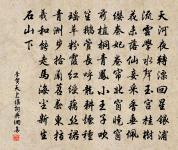 天河夜轉漂回星銀浦
流雲學水聲玉宮桂樹
花未落仙妾採香垂珮
纓秦妃卷簾北窗曉窗
前植桐青鳳小王子吹
笙鵝管長呼龍耕煙種
瑤草粉霞紅綬藕絲裙
青洲步拾蘭苕春東指
羲和能走馬海塵新生
石山下
李賀天上謠